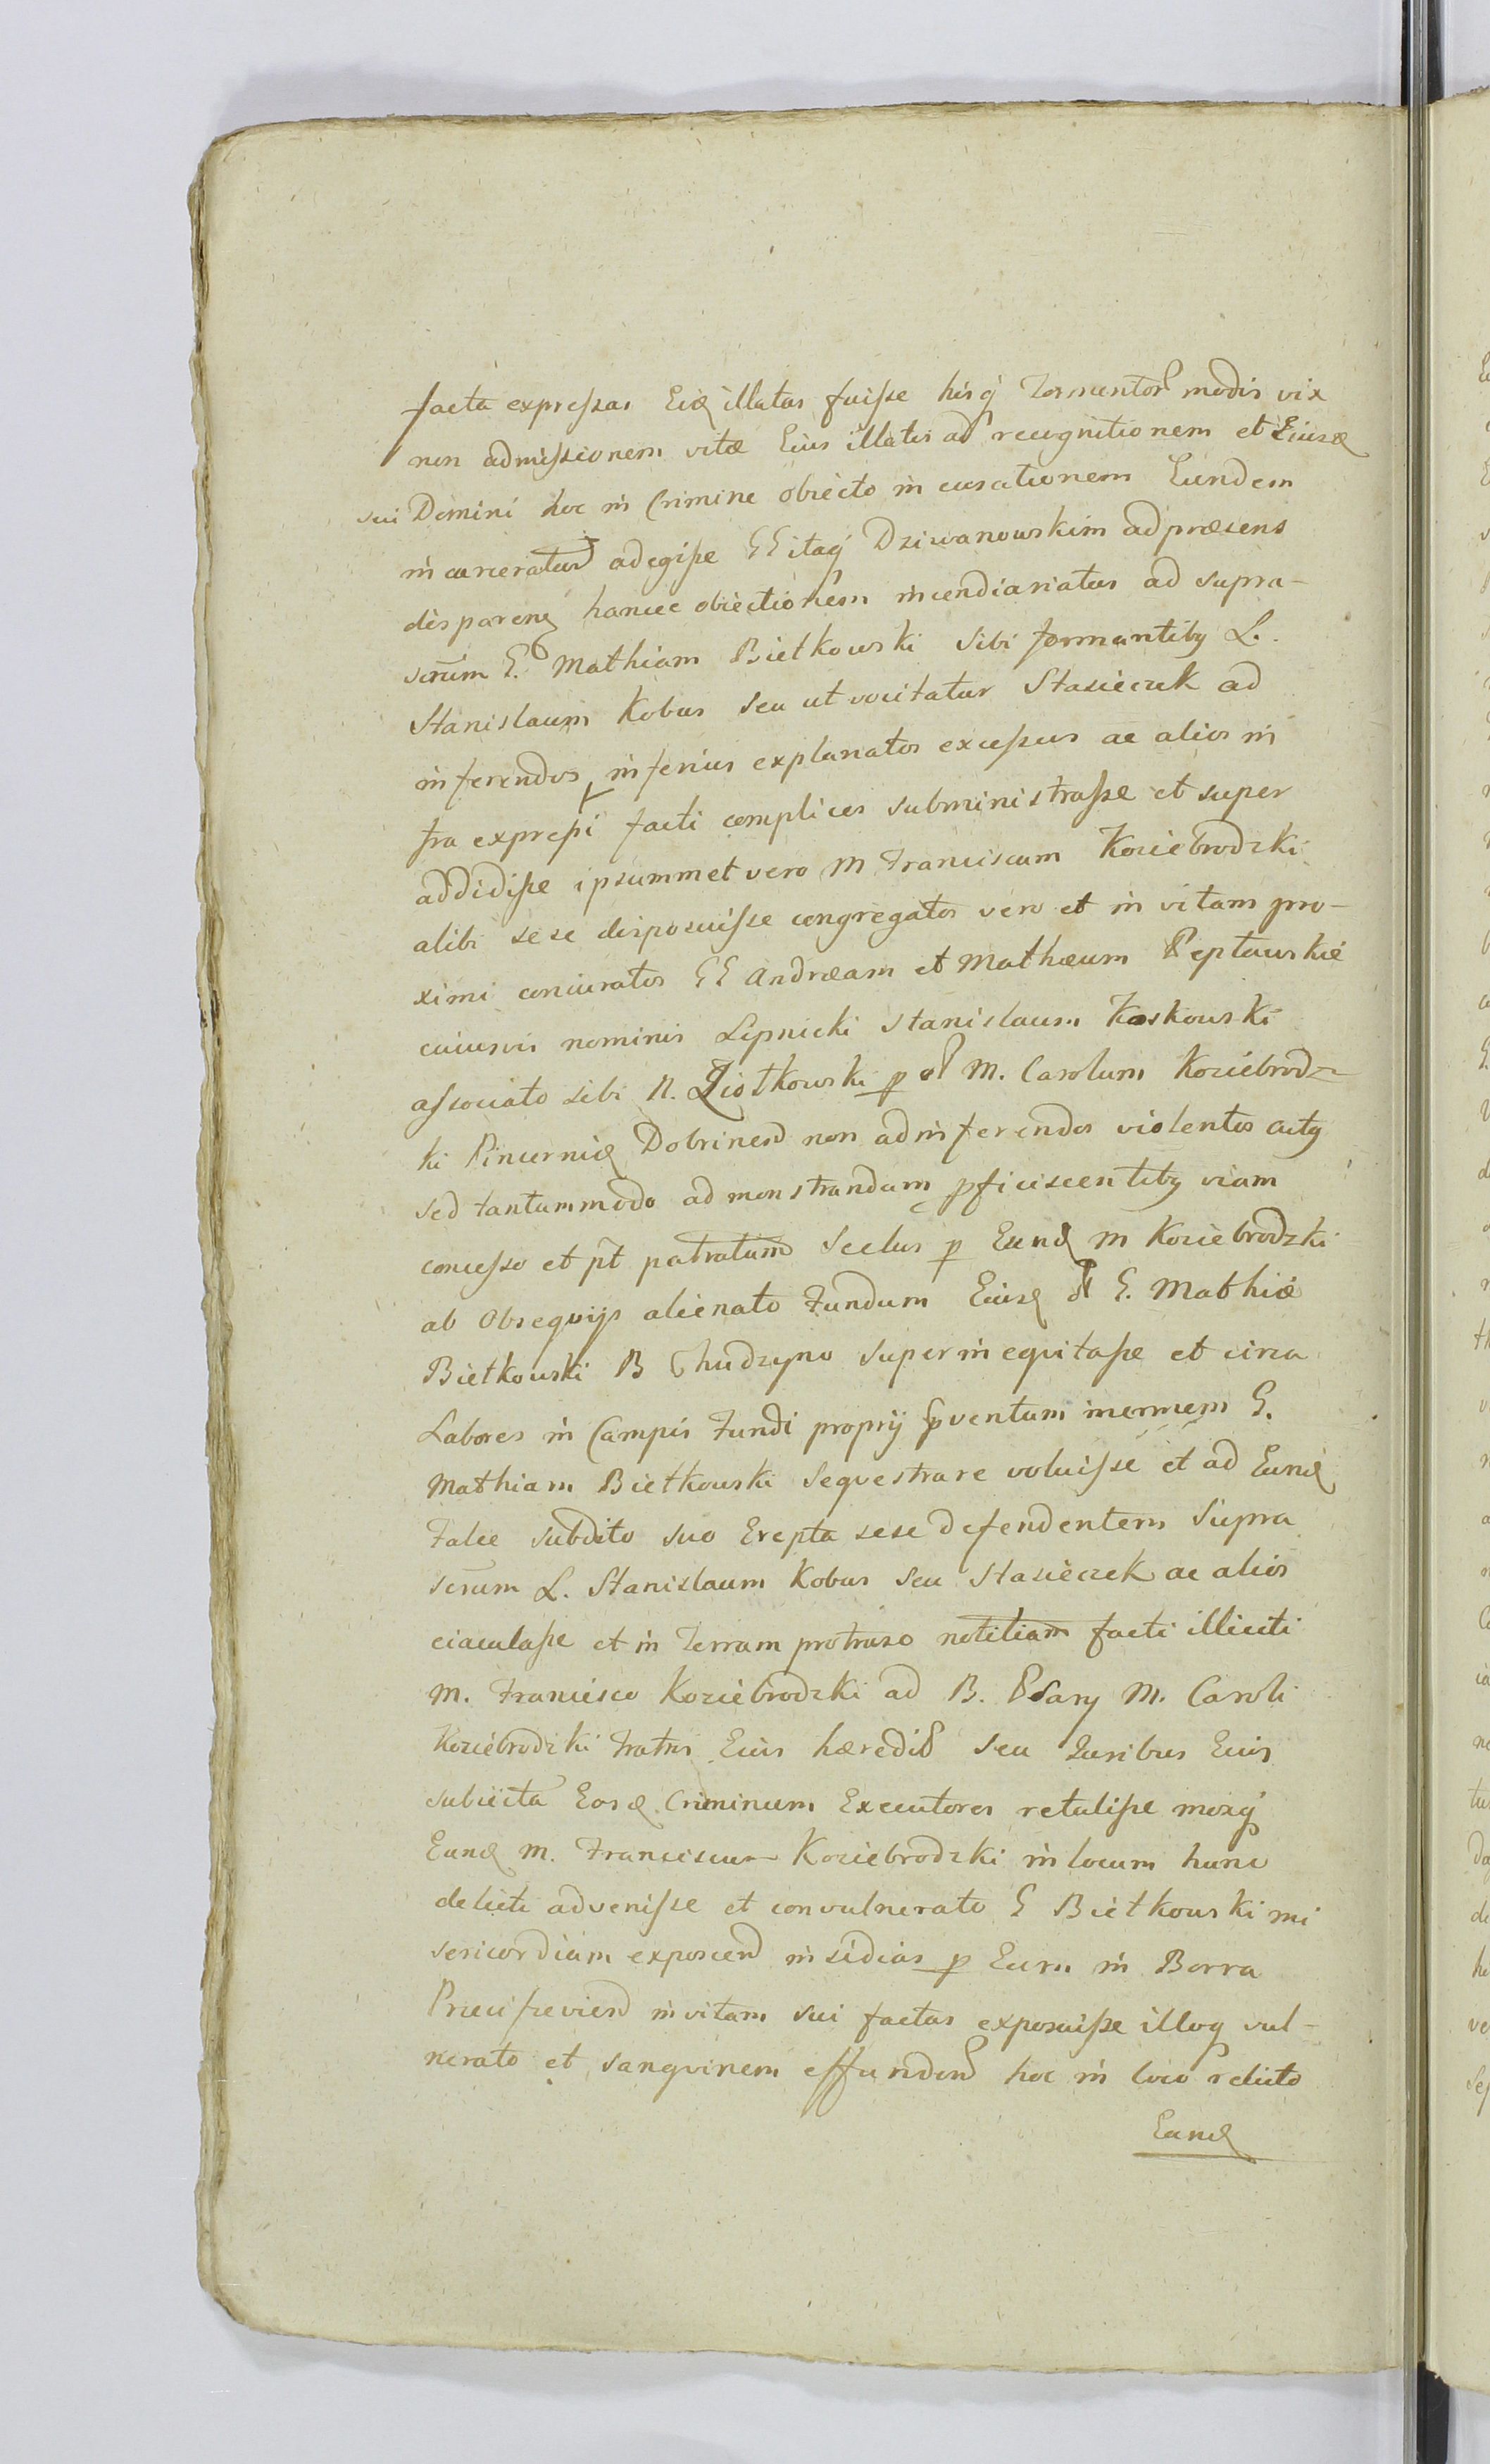 facta expressas Eid illatas fuisse hisq Tormentor modis vix
non admissionem vitæ Eius illatis ad recognitionem et Eiusd
sui Domini hoc in Crimine obiecto incusationem Eundem
incarceratum adegisse GG itaq Dziwanowskim ad præsens
disparen hancce obiectionem incendiariatus ad supra-
scrum G. Mathiam Bietkowski sibi formantibq L.
Stanislaum Kobus seu ut vocitatur Stasieczek ad
inferendos inferius explanatos excessus ac alios in
fra expressi facti complices subministrasse et super
addidisse ipsummet vero M Franciscum Koziebrodzki
alibi sese disposuisse congregatos vero et in vitam pro-
ximi coniuratos GG Andræam et Mathæum Peptowskie
cuiusvis nominis Lipnicki Stanislaum Koskowski
associato sibi N. Ziotkowski p M. Carolum Koziebrodz
ki Pincernid Dobrinen non ad inferendos violentos actq
sed tantummodo ad monstrandam pficiscentibq viam
concesso et pt patratum Scelus p Eund M Koziebrodzki
ab Obsequijs alienato Fundum Eiusd G. Mathiæ
Bietkowski B Chudzyno superinequitasse et circa
Labores in Campis Fundi proprij pventum inermem G.
Mathiam Bietkowski sequestrare voluisse et ad Eund
Falce subdito suo Erepta sese defendentem Supra
scrum L. Stanislaum Kobus seu Stasieczek ac alios
eiaculasse et in Terram protruso notitiam facti illiciti
M. Francisco Koziebrodzki ad B. Psary M. Caroli
Koziebrodzki Fratris Eius hæredit seu Iuribus Eius
subiecta Eosd Criminum Executores retulisse moxq
Eund M. Franciscum Koziebrodzki in locum hunc
delicti advenisse et convulnerato G Bietkowski mi
sericordiam exposcen insidias p Eum in Borra
Przeciszevien in vitam sui factas exposuisse illoq vul-
nerato et sanguinem effunden hoc in loco relicto
Eund